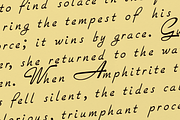 to find solace in the
ring the tempest of his
orce; it wins by grace.
er, she returned to the wa
en. When Amphitrite t
s fell silent, the tides ca
lorious, triumphant proce